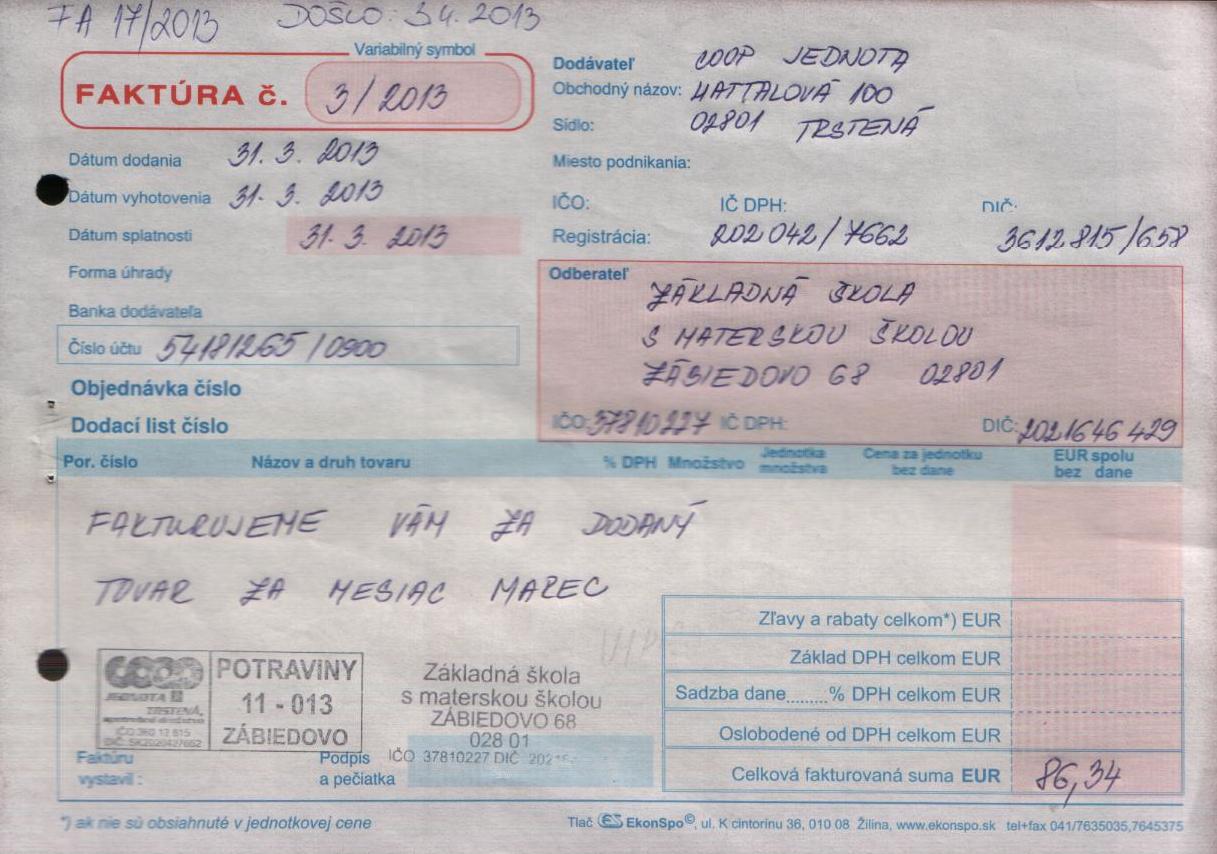 FA 17/2013 DOŠLO: 3.4.2013
Variabilný symbol
FAKTÚRA č. 3/2013
Dátum dodania 31. 3. 2013
Dátum vyhotovenia 31. 3. 2013
Dátum splatnosti 31. 3. 2013
Forma úhrady
Banka dodávateľa
Číslo účtu 54181265/0900
Objednávka číslo
Dodací list číslo
Dodávateľ COOP JEDNOTA
Obchodný názov: HATTALOVÁ 100
Sídlo: 02801 TRSTENÁ
Miesto podnikania:
IČO: IČ DPH: DIČ:
Registrácia: 202 042/7662 3612815/658
Odberateľ
ZÁKLADNÁ ŠKOLA
S MATERSKOU ŠKOLOU
ZÁBIEDOVO 68 02801
IČO: 37810227 IČ DPH: DIČ: 2021646429
Por. číslo Názov a druh tovaru % DPH Množstvo Jednotka množstva Cena za jednotku bez dane EUR spolu bez dane
FAKTURUJEME VÁM ZA DODANÝ
TOVAR ZA MESIAC MAREC
Zľavy a rabaty celkom*) EUR
Základ DPH celkom EUR
Sadzba dane.........% DPH celkom EUR
Oslobodené od DPH celkom EUR
Celková fakturovaná suma EUR 86,34
COOP
JEDNOTA
TRSTENÁ,
spotrebné družstvo
POTRAVINY
11 - 013
ZÁBIEDOVO
Základná škola
s materskou školou
ZÁBIEDOVO 68
028 01
IČO 37810227 DIČ
Faktúru
vystavil :
Podpis
a pečiatka
*) ak nie sú obsiahnuté v jednotkovej cene
Tlač EkonSpo©, ul. K cintorínu 36, 010 08 Žilina, www.ekonspo.sk tel+fax 041/7635035,7645375